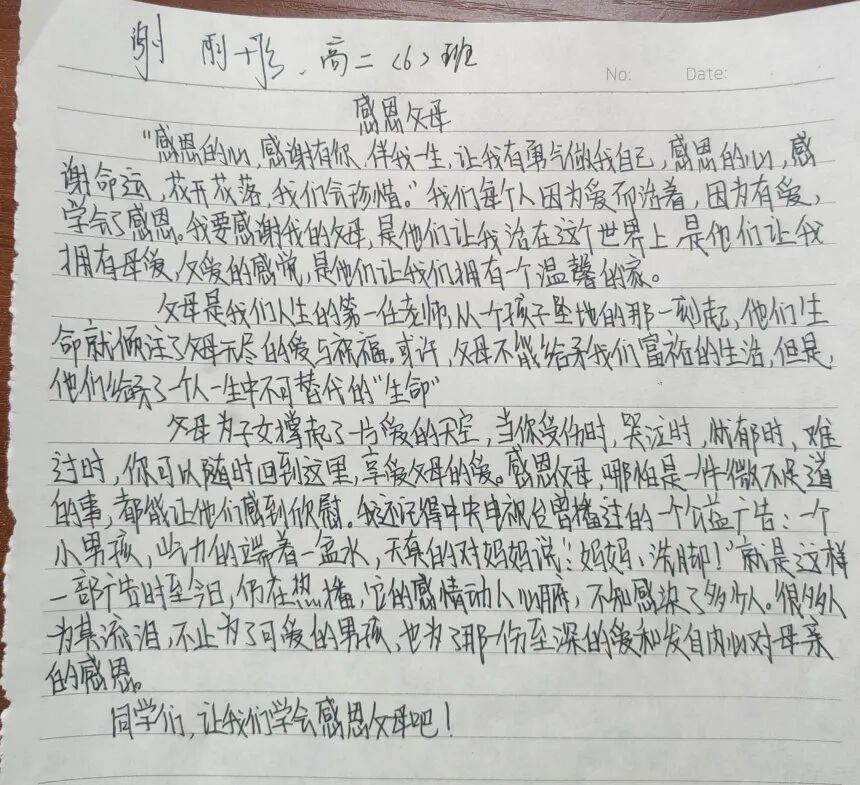 谢雨彤、高二<6>班
No: Date:
感恩父母
"感恩的心,感谢有你,伴我一生,让我有勇气做我自己,感恩的心,感
谢命运,花开花落,我们会珍惜。"我们每个人因为爱而活着,因为有爱,
学会了感恩。我要感谢我的父母,是他们让我活在这个世界上,是他们让我
拥有母爱,父爱的感觉,是他们让我们拥有一个温馨的家。
父母是我们人生的第一任老师,从一个孩子坠地的那一刻起,他们生
命就倾注了父母无尽的爱与祝福。或许,父母不能给予我们富裕的生活,但是,
他们给予了一个人一生中不可替代的"生命"
父母为子女撑起了一片爱的天空,当你受伤时,哭泣时,忧郁时,难
过时,你可以随时回到这里,享爱父母的爱。感恩父母,哪怕是一件微不足道
的事,都能让他们感到欣慰。我还记得中央电视台曾播过的一个公益广告:一个
小男孩,吃力的端着一盆水,天真的对妈妈说:"妈妈、洗脚!"就是这样
一部广告时至今日,仍在热播,它的感情动人心脾,不知感染了多少人。很多人
为其流泪,不止为了可爱的男孩,也为了那一份至深的爱和发自内心对母亲
的感恩。
同学们,让我们学会感恩父母吧!